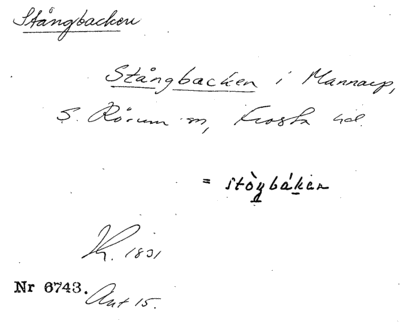 Stångbacken
Stångbacken i Mannarp,
S. Rörum sn, Frosta hd.
= stòŋbákan
1831
Nr 6743. Ant 15.